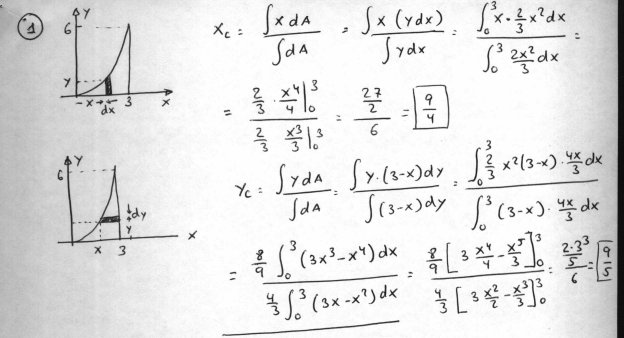 1
Y
6
Y
-x→ ←
dx
3
x
Xc = ∫x dA / ∫dA = ∫x (y dx) / ∫y dx = ∫₀³ x · 2/3 x² dx / ∫₀³ 2x²/3 dx =
= (2/3 · x⁴/4 |₀³) / (2/3 x³/3 |₀³) = (27/2) / 6 = 9/4
Y
6
dy
Y
x
3
x
Yc = ∫y dA / ∫dA = ∫y · (3-x) dy / ∫(3-x) dy = ∫₀³ 2/3 x² (3-x) · 4x/3 dx / ∫₀³ (3-x) · 4x/3 dx
= 8/9 ∫₀³ (3x³ - x⁴) dx / 4/3 ∫₀³ (3x - x²) dx = 8/9 [3 x⁴/4 - x⁵/5]₀³ / 4/3 [3 x²/2 - x³/3]₀³ = (2·3³/5) / 6 = 9/5